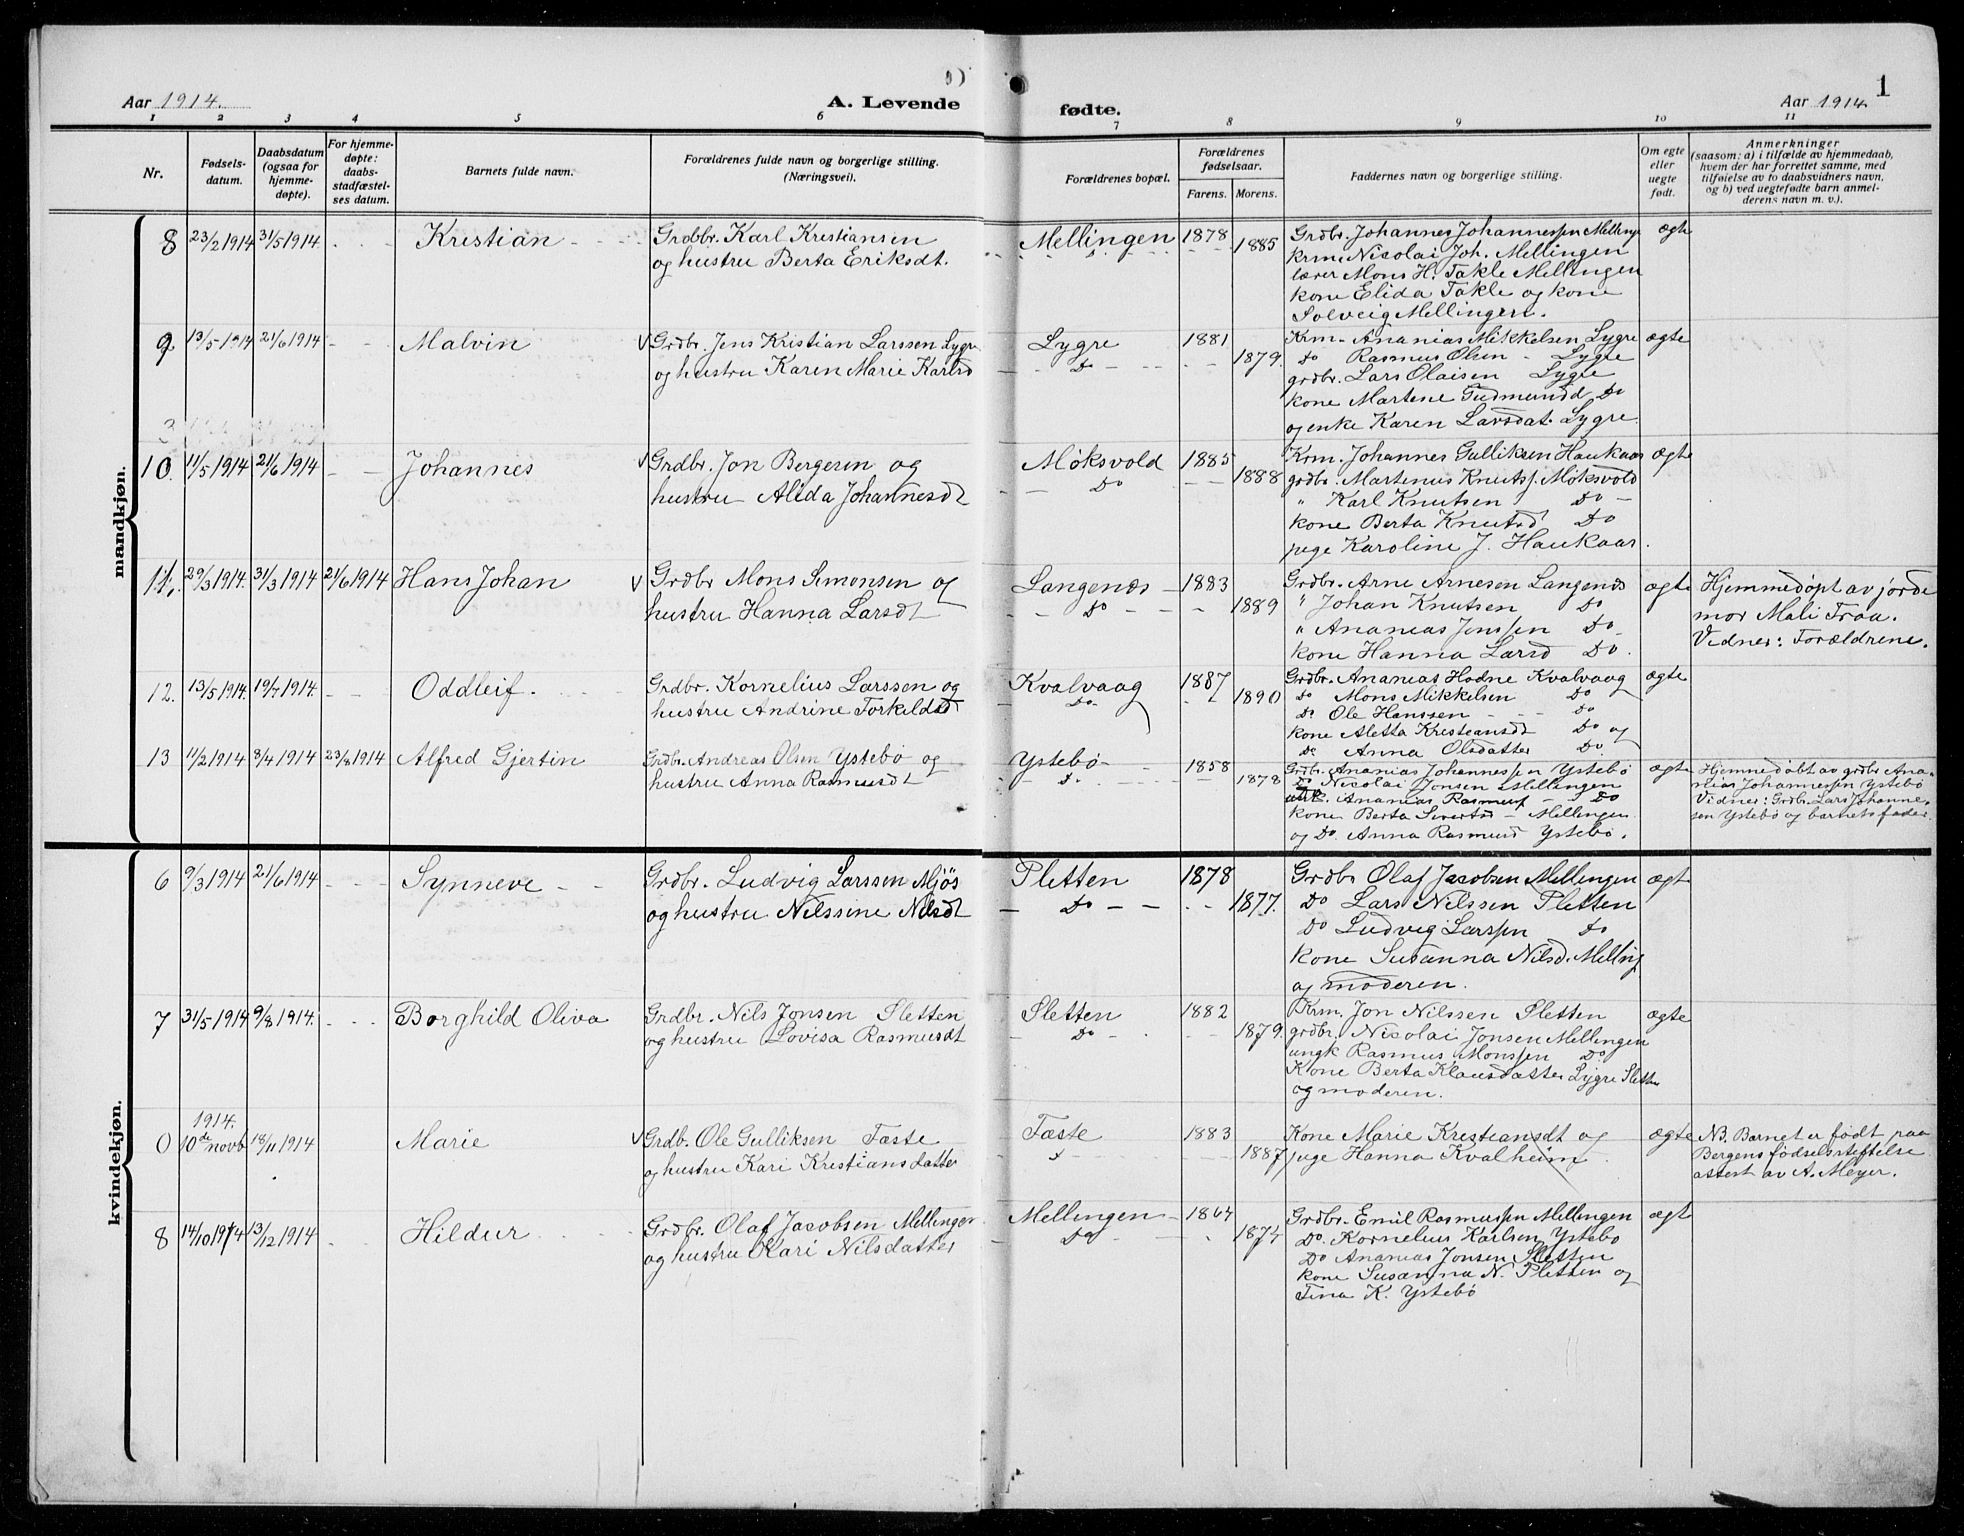 Aar 1914. A. Levende
fødte. Aar 1914 1
1 2 3 4 5 6 7 8 9 10 11
Nr.
Fødsels-
datum.
Daabsdatum
(ogsaa for
hjemme-
døpte).
For hjemme-
døpte:
daabs-
stadfæstel-
ses datum.
Barnets fulde navn.
Forældrenes fulde navn og borgerlige stilling.
(Næringsvei).
Forældrenes bopæl.
Forældrenes
fødselsaar.
Farens. Morens.
Faddernes navn og borgerlige stilling.
Om egte
eller
uegte
født.
Anmerkninger
(saasom: a) i tilfælde av hjemmedaab,
hvem der har forrettet samme, med
tilføielse av to daabsvidners navn,
og b) ved uegtefødte barn anmel-
derens navn m. v.).
mandkjøn.
8 23/2 1914 31/5 1914 - - Kristian - -
Grdbr. Karl Kristiansen
og hustru Berta Eriksdt.
Mellingen 1878 1885
Grdbr. Johannes Johannessen Melling
krm. Nicolai Joh. Mellingen
lærer Mons H. Takle Mellingen
kone Elida Takle og kone
Solveig Mellingen.
ægte
9 13/5 1914 21/6 1914 - - Malvin
V Grdbr. Jens Kristian Larssen Lygre
og hustru Karen Marie Karlsd
Lygre 1881
Do 1879.
Krm. Ananias Mikkelsen Lygre
Do Rasmus Olsen - Lygre
grdbr. Lars Olaisen Lygre
kone Martene Gudmundd Do
og enke Karen Larsdat. Lygre.
ægte
10 11/5 1914 21/6 1914 - - Johannes
V Grdbr. Jon Bergesen og
hustru Alida Johannesdt
Møksvold 1885
Do 1888
Krm. Johannes Gulliksen Haukaas
grdbr. Martenus Knuts. Møksvold
" Karl Knutsen Do -
kone Berta Knutsd Do
pige Karoline J. Haukaas.
ægte
11. 29/3 1914. 31/3 1914 21/6 1914 Hans Johan
V Grdbr Mons Simonsen og
hustru Hanna Larsdt
Langenæs - 1883
Do 1889
Grdbr. Arne Arnesen Langenæs
" Johan Knutsen Do
" Ananias Jonssen Do
kone Hanna Larsd Do.
ægte
Hjemmedøpt av jorde
mor Mali Traa.
Vidner: Forældrene.
12. 13/5 1914. 19/7 1914. - - Oddleif.
Grdbr. Kornelius Larssen og
hustru Andrine Torkildsd
Kvalvaag 1887
Do. 1890
Grdbr. Ananias Hodne Kvalvaag
Do Mons Mikkelsen Do
Do Ole Hanssen - - Do
kone Aletta Kristiansdt Do og
Do Anna Olsdatter Do.
ægte
13 11/2 1914 8/4 1914 23/8 1914 Alfred Gjertin
Grdbr. Andreas Olsen Ystebø og
hustru Anna Rasmusdt
Ystebø - 1858
Do 1878
Grdbr. Ananias Johannessen Ystebø
Do Nicolai Jonsen Mellingen
ungk. Ananias Rasmus - Do
kone Berta Sivertsd - Mellingen
og Do. Anna Rasmusd Ystebø.
ægte
Hjemmedøbt av grdbr Ana-
nias Johannessen Ystebø
Vidner: Grdbr. Lars Johanne-
sen Ystebø og barnets fader.
kvindekjøn.
6 9/3 1914 21/6 1914 - - Synneve - -
Grdbr. Ludvig Larssen Mjøs
og hustru Nilssine Nilsdt
Pletten 1878
- Do - - 1877.
Grdbr Olaf Jacobsen Mellingen
Do Lars Nilssen Pletten
Do Ludvig Larssen Do
kone Susanna Nilsd. Melling
og moderen.
ægt
7 31/5 1914 9/8 1914. - - Borghild Oliva
Grdbr. Nils Jonsen Sletten
og hustru Lovisa Rasmusdt
Sletten 1882
Do - 1879.
Krm. Jon Nilssen Sletten
grdbr. Nicolai Jonsen Mellingen
ungk Rasmus Monssen Do
Kone Berta Klausdatter Lygre Sletten
og moderen.
ægte
0 1914. 10de novb 18/11 1914 Marie
V Grdb. Ole Gulliksen Tæste
og hustru Kari Kristiansdatter
Tæste 1883
1887
Kone Marie Kristiansdt og
pige Hanna Kvalheim
ægte
NB. Barnet er født paa
Bergens fødselsstiftelse
attest av A. Meyer.
8 14/10 1914 13/12 1914 - - Hildur
Grdbr. Olaf Jacobsen Mellingen
og hustru Kari Nilsdatter
Mellingen - 1864
Do 1874
Grdbr. Emil Rasmussen Mellingen
Do. Kornelius Karlsen Ystebø
Do Ananias Jonsen Sletten
kone Susanna N. Pletten og
Tina K. Ystebø
ægt